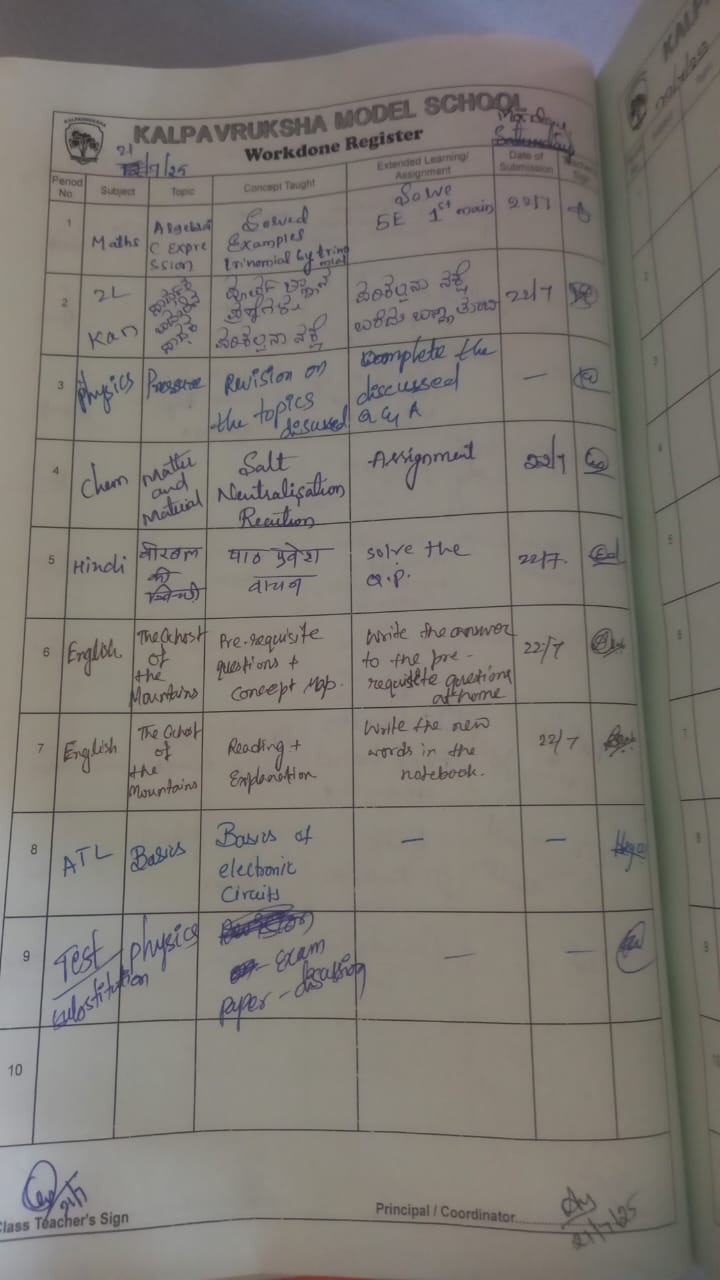 KALPAVRUKSHA MODEL SCHOOL
Workdone Register
Monday
Saturday
21
/7/25
Period No. Subject Topic Concept Taught Extended Learning/ Assignment Date of Submission
1 Maths Algebrai Solved Solve 22/7
C Expre Examples 5E 1st main
ssion trinomial by trino
mial
2 2L 22/7
Kan
3 Physics Pressure Revision on Complete the —
the topics discussed
discussed Q & A
4 Chem Matter Salt Assignment 22/7
and Neutralisation
Material Reaction
5 Hindi बीरबल पाठ प्रवेश solve the 22/7.
की वाचन Q.P.
खिचड़ी
6 English The Ghost Pre-requisite Write the answer 22/7
of questions + to the pre-
the Concept Map. requisite questions
Mountains at home
7 English The Ghost Reading + Write the new 22/7
of Explanation words in the
the notebook.
Mountains
8 ATL Basics Basics of — —
electronic
Circuits
9 Test physics — —
substitution Exam
paper - discussion
10
21/7
Class Teacher's Sign
Principal / Coordinator
21/7/25